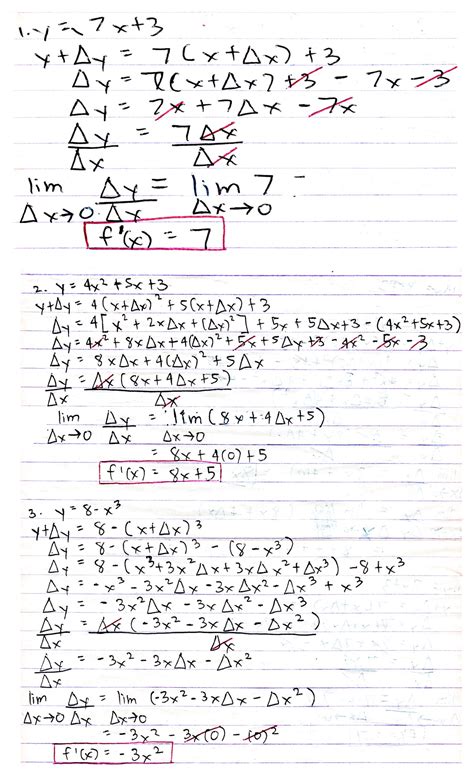 1. y = 7x+3
y+Δy = 7(x+Δx)+3
Δy = 7(x+Δx)+3 - 7x-3
Δy = 7x+7Δx-7x
Δy/Δx = 7Δx/Δx
lim Δx→0 Δy/Δx = lim Δx→0 7 =
f'(x) = 7
2. y = 4x²+5x+3
y+Δy = 4(x+Δx)²+5(x+Δx)+3
Δy = 4[x²+2xΔx+(Δx)²]+5x+5Δx+3-(4x²+5x+3)
Δy = 4x²+8xΔx+4(Δx)²+5x+5Δx+3-4x²-5x-3
Δy = 8xΔx+4(Δx)²+5Δx
Δy/Δx = Δx(8x+4Δx+5)/Δx
lim Δx→0 Δy/Δx = lim Δx→0 (8x+4Δx+5)
= 8x+4(0)+5
f'(x) = 8x+5
3. y = 8-x³
y+Δy = 8-(x+Δx)³
Δy = 8-(x+Δx)³-(8-x³)
Δy = 8-(x³+3x²Δx+3xΔx²+Δx³)-8+x³
Δy = -x³-3x²Δx-3xΔx²-Δx³+x³
Δy = -3x²Δx-3xΔx²-Δx³
Δy/Δx = Δx(-3x²-3xΔx-Δx²)/Δx
Δy/Δx = -3x²-3xΔx-Δx²
lim Δx→0 Δy/Δx = lim Δx→0 (-3x²-3xΔx-Δx²)
= -3x²-3x(0)-(0)²
f'(x) = -3x²